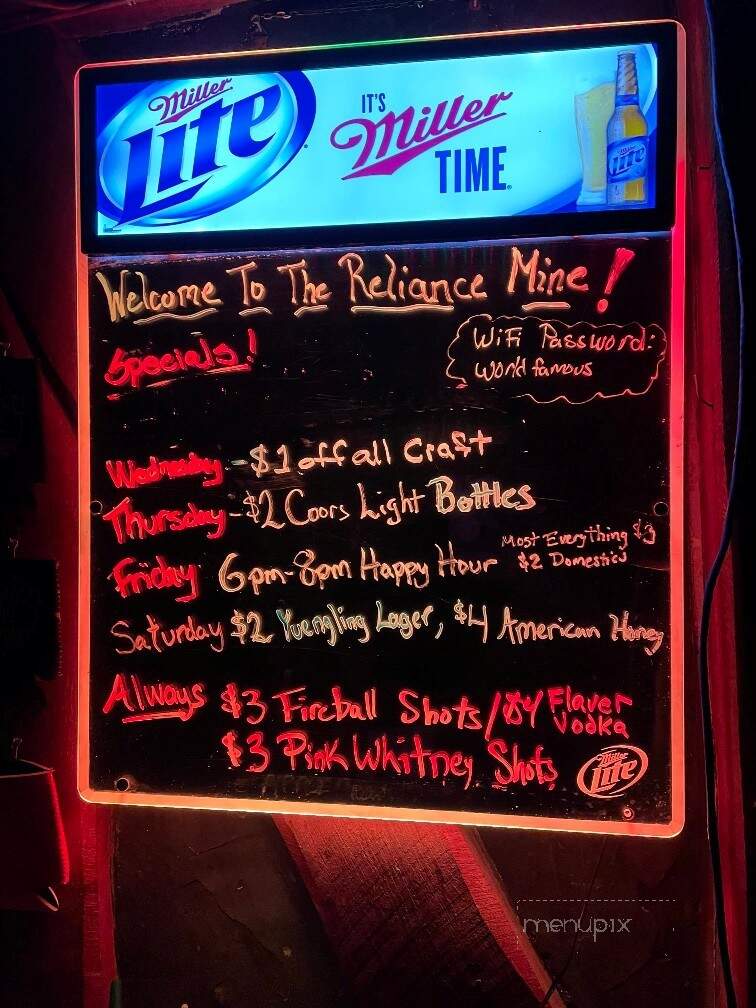 Miller
Lite
IT'S
Miller
TIME
Lite
Welcome To The Reliance Mine!
Specials!
WiFi Password:
World famous
Wednesday - $1 off all Craft
Thursday - $2 Coors Light Bottles
Friday 6pm-8pm Happy Hour
Most Everything $3
$2 Domestics
Saturday $2 Yuengling Lager, $4 American Honey
Always $3 Fireball Shots/
Flaver
Vodka
$3 Pink Whitney Shots
Miller
Lite
menupix